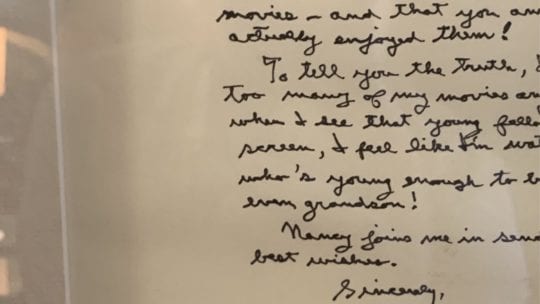 movies – and that you and
actually enjoyed them!
To tell you the truth, I
too many of my movies any
when I see that young fello
screen, I feel like I'm wat
who's young enough to b
even grandson!
Nancy joins me in send
best wishes.
Sincerely,